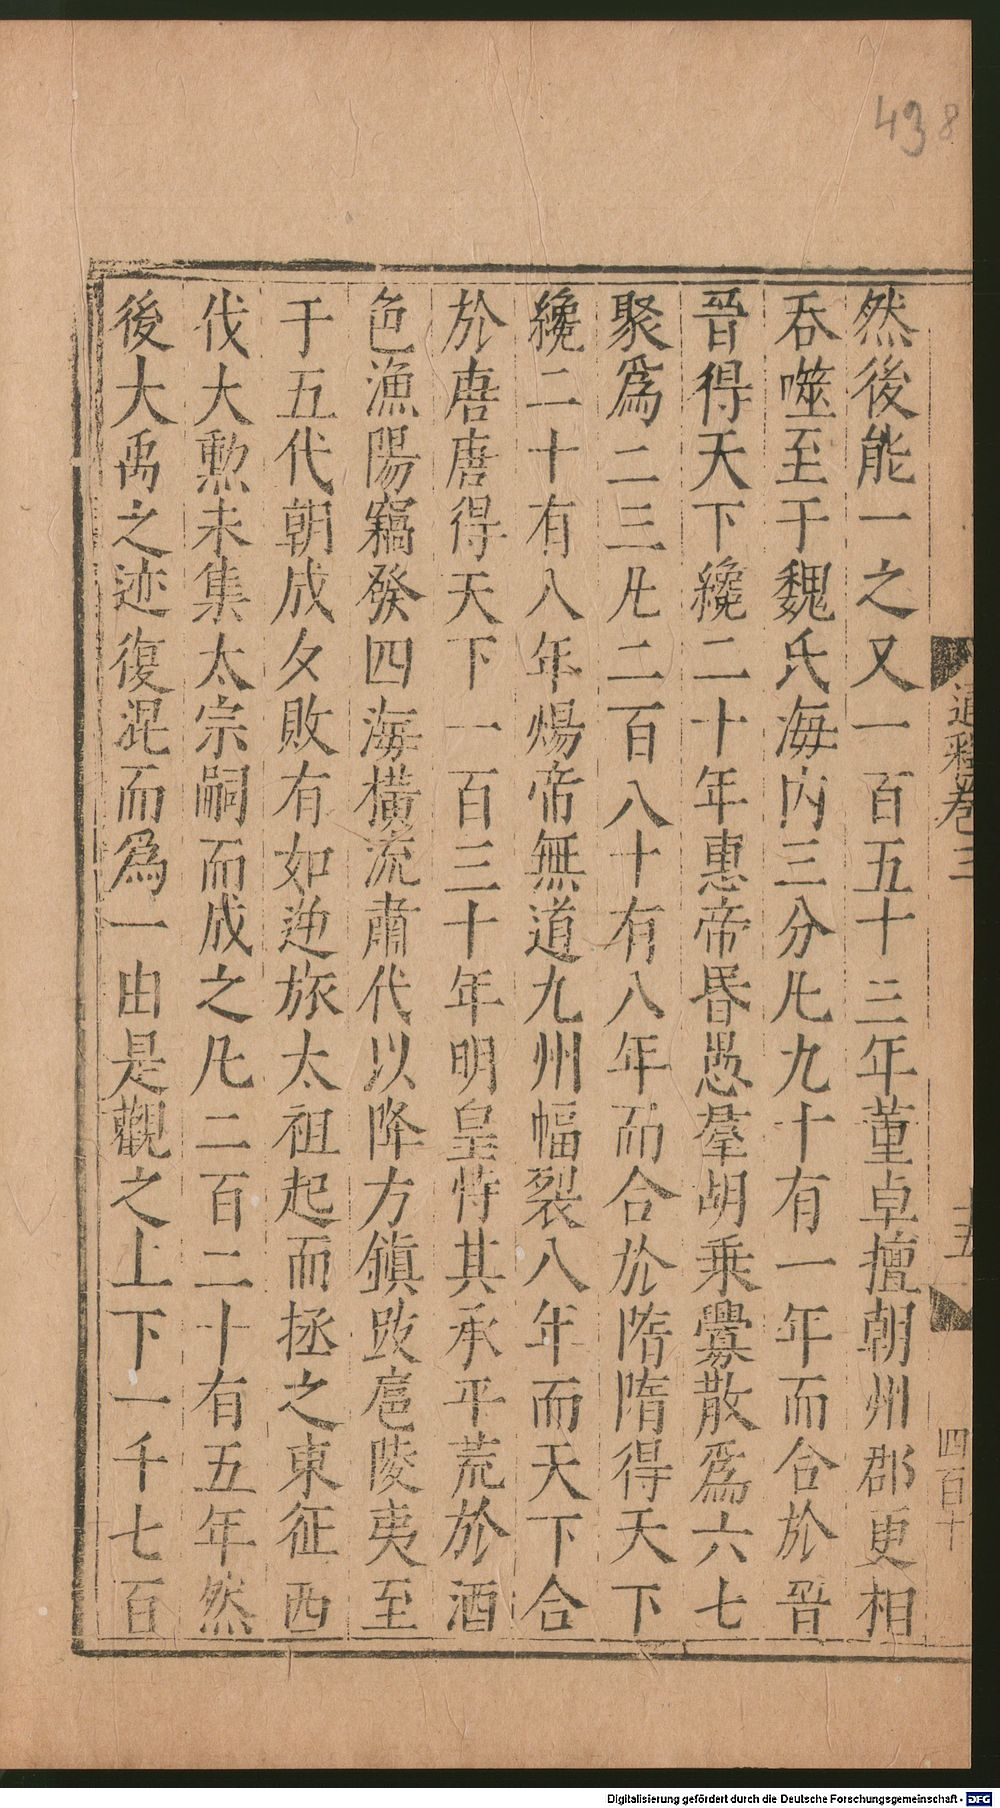 然後能一之又一百五十三年董卓擅朝州郡更相
吞噬至于魏氏海内三分凡九十有一年而合於晉
晉得天下纔二十年惠帝昬愚羣胡乘釁散爲六七
聚爲二三凡二百八十有八年而合於隋隋得天下
纔二十有八年煬帝無道九州幅裂八年而天下合
於唐唐得天下一百三十年明皇恃其承平荒於酒
色漁陽竊發四海橫流肅代以降方鎮跋扈陵夷至
于五代朝成夕敗有如逆旅太祖起而拯之東征西
伐大勲未集太宗嗣而成之凡二百二十有五年然
後大禹之迹復混而爲一由是觀之上下一千七百
通釋卷三
十五
四百十
438
Digitalisierung gefördert durch die Deutsche Forschungsgemeinschaft - DFG